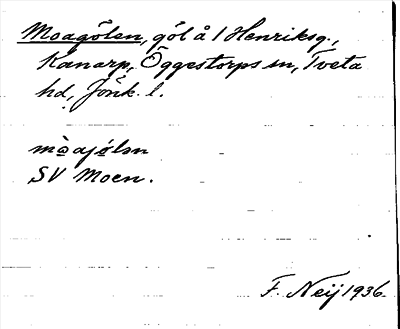 Moagölen, göl å 1 Henriksg.,
Kanarp, Öggestorps sn, Tveta
hd, Jönk. l.
mòajölən
SV Moen.
F. Neij 1936.